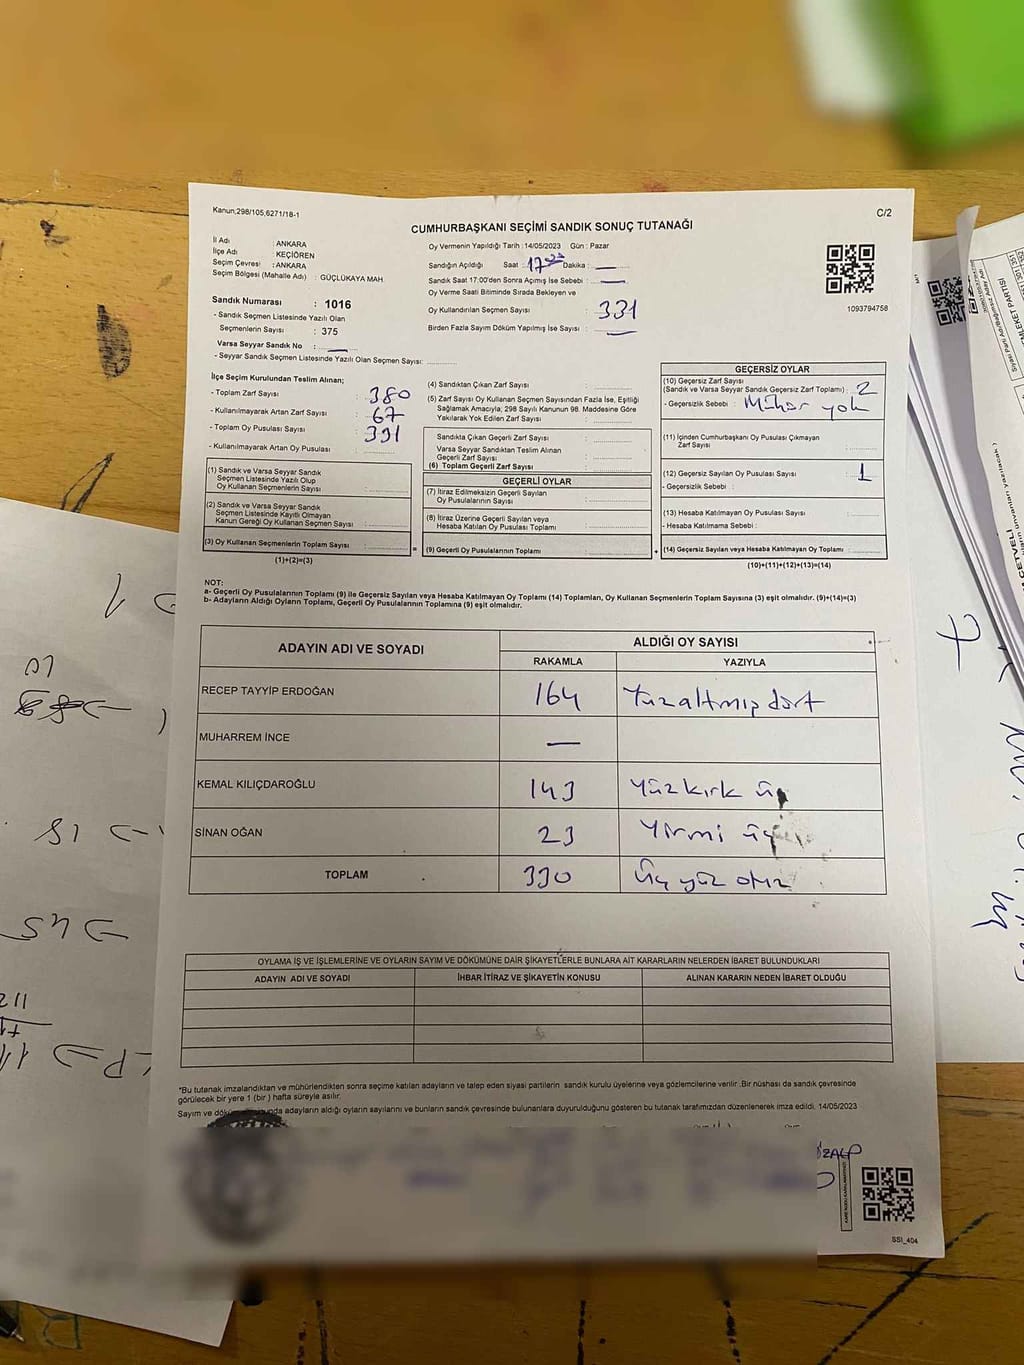 Kanun,298/105,6271/18-1
C/2
CUMHURBAŞKANI SEÇİMİ SANDIK SONUÇ TUTANAĞI
İl Adı : ANKARA
İlçe Adı : KEÇİÖREN
Seçim Çevresi : ANKARA
Seçim Bölgesi (Mahalle Adı) : GÜÇLÜKAYA MAH.
Oy Vermenin Yapıldığı Tarih :14/05/2023 Gün : Pazar
Sandığın Açıldığı Saat : 17 Dakika : —
Sandık Saat 17:00'den Sonra Açımış İse Sebebi : —
Oy Verme Saati Bitiminde Sırada Bekleyen ve
Oy Kullandırılan Seçmen Sayısı : 331
Birden Fazla Sayım Döküm Yapılmış İse Sayısı : —
1093794758
Sandık Numarası : 1016
- Sandık Seçmen Listesinde Yazılı Olan
Seçmenlerin Sayısı : 375
Varsa Seyyar Sandık No : —
- Seyyar Sandık Seçmen Listesinde Yazılı Olan Seçmen Sayısı:
İlçe Seçim Kurulundan Teslim Alınan;
- Toplam Zarf Sayısı : 380
- Kullanılmayarak Artan Zarf Sayısı : 67
- Toplam Oy Pusulası Sayısı : 331
- Kullanılmayarak Artan Oy Pusulası :
(1) Sandık ve Varsa Seyyar Sandık
Seçmen Listesinde Yazılı Olup
Oy Kullanan Seçmenlerin Sayısı :
(2) Sandık ve Varsa Seyyar Sandık
Seçmen Listesinde Kayıtlı Olmayan
Kanun Gereği Oy Kullanan Seçmen Sayısı :
(3) Oy Kullanan Seçmenlerin Toplam Sayısı :
(1)+(2)=(3)
(4) Sandıktan Çıkan Zarf Sayısı :
(5) Zarf Sayısı Oy Kullanan Seçmen Sayısından Fazla İse, Eşitliği
Sağlamak Amacıyla; 298 Sayılı Kanunun 98. Maddesine Göre
Yakılarak Yok Edilen Zarf Sayısı :
Sandıkta Çıkan Geçerli Zarf Sayısı :
Varsa Seyyar Sandıktan Teslim Alınan
Geçerli Zarf Sayısı :
(6) Toplam Geçerli Zarf Sayısı :
GEÇERLİ OYLAR
(7) İtiraz Edilmeksizin Geçerli Sayılan
Oy Pusulalarının Sayısı :
(8) İtiraz Üzerine Geçerli Sayılan veya
Hesaba Katılan Oy Pusulası Toplamı :
(9) Geçerli Oy Pusulalarının Toplamı :
GEÇERSİZ OYLAR
(10) Geçersiz Zarf Sayısı
(Sandık ve Varsa Seyyar Sandık Geçersiz Zarf Toplamı) : 2
- Geçersizlik Sebebi : Mühür yok
(11) İçinden Cumhurbaşkanı Oy Pusulası Çıkmayan
Zarf Sayısı :
(12) Geçersiz Sayılan Oy Pusulası Sayısı : 1
- Geçersizlik Sebebi :
(13) Hesaba Katılmayan Oy Pusulası Sayısı :
- Hesaba Katılmama Sebebi :
(14) Geçersiz Sayılan veya Hesaba Katılmayan Oy Toplamı :
(10)+(11)+(12)+(13)=(14)
NOT:
a- Geçerli Oy Pusulalarının Toplamı (9) ile Geçersiz Sayılan veya Hesaba Katılmayan Oy Toplamı (14) Toplamları, Oy Kullanan Seçmenlerin Toplam Sayısına (3) eşit olmalıdır. (9)+(14)=(3)
b- Adayların Aldığı Oyların Toplamı, Geçerli Oy Pusulalarının Toplamına (9) eşit olmalıdır.
ADAYIN ADI VE SOYADI
ALDIĞI OY SAYISI
RAKAMLA YAZIYLA
RECEP TAYYİP ERDOĞAN 164 Yüzaltmış dört
MUHARREM İNCE —
KEMAL KILIÇDAROĞLU 143 Yüzkırk üç
SİNAN OĞAN 23 Yirmi üç
TOPLAM 330 Üç yüz otuz
OYLAMA İŞ VE İŞLEMLERİNE VE OYLARIN SAYIM VE DÖKÜMÜNE DAİR ŞİKAYETLERLE BUNLARA AİT KARARLARIN NELERDEN İBARET BULUNDUKLARI
ADAYIN ADI VE SOYADI İHBAR İTİRAZ VE ŞİKAYETİN KONUSU ALINAN KARARIN NEDEN İBARET OLDUĞU
*Bu tutanak imzalandıktan ve mühürlendikten sonra seçime katılan adayların ve talep eden siyasi partilerin sandık kurulu üyelerine veya gözlemcilerine verilir. Bir nüshası da sandık çevresinde
görülecek bir yere 1 (bir) hafta süreyle asılır.
Sayım ve adayların aldığı oyların sayılarını ve bunların sandık çevresinde bulunanlara duyurulduğunu gösteren bu tutanak tarafımızdan düzenlenerek imza edildi. 14/05/2023
SSI_404